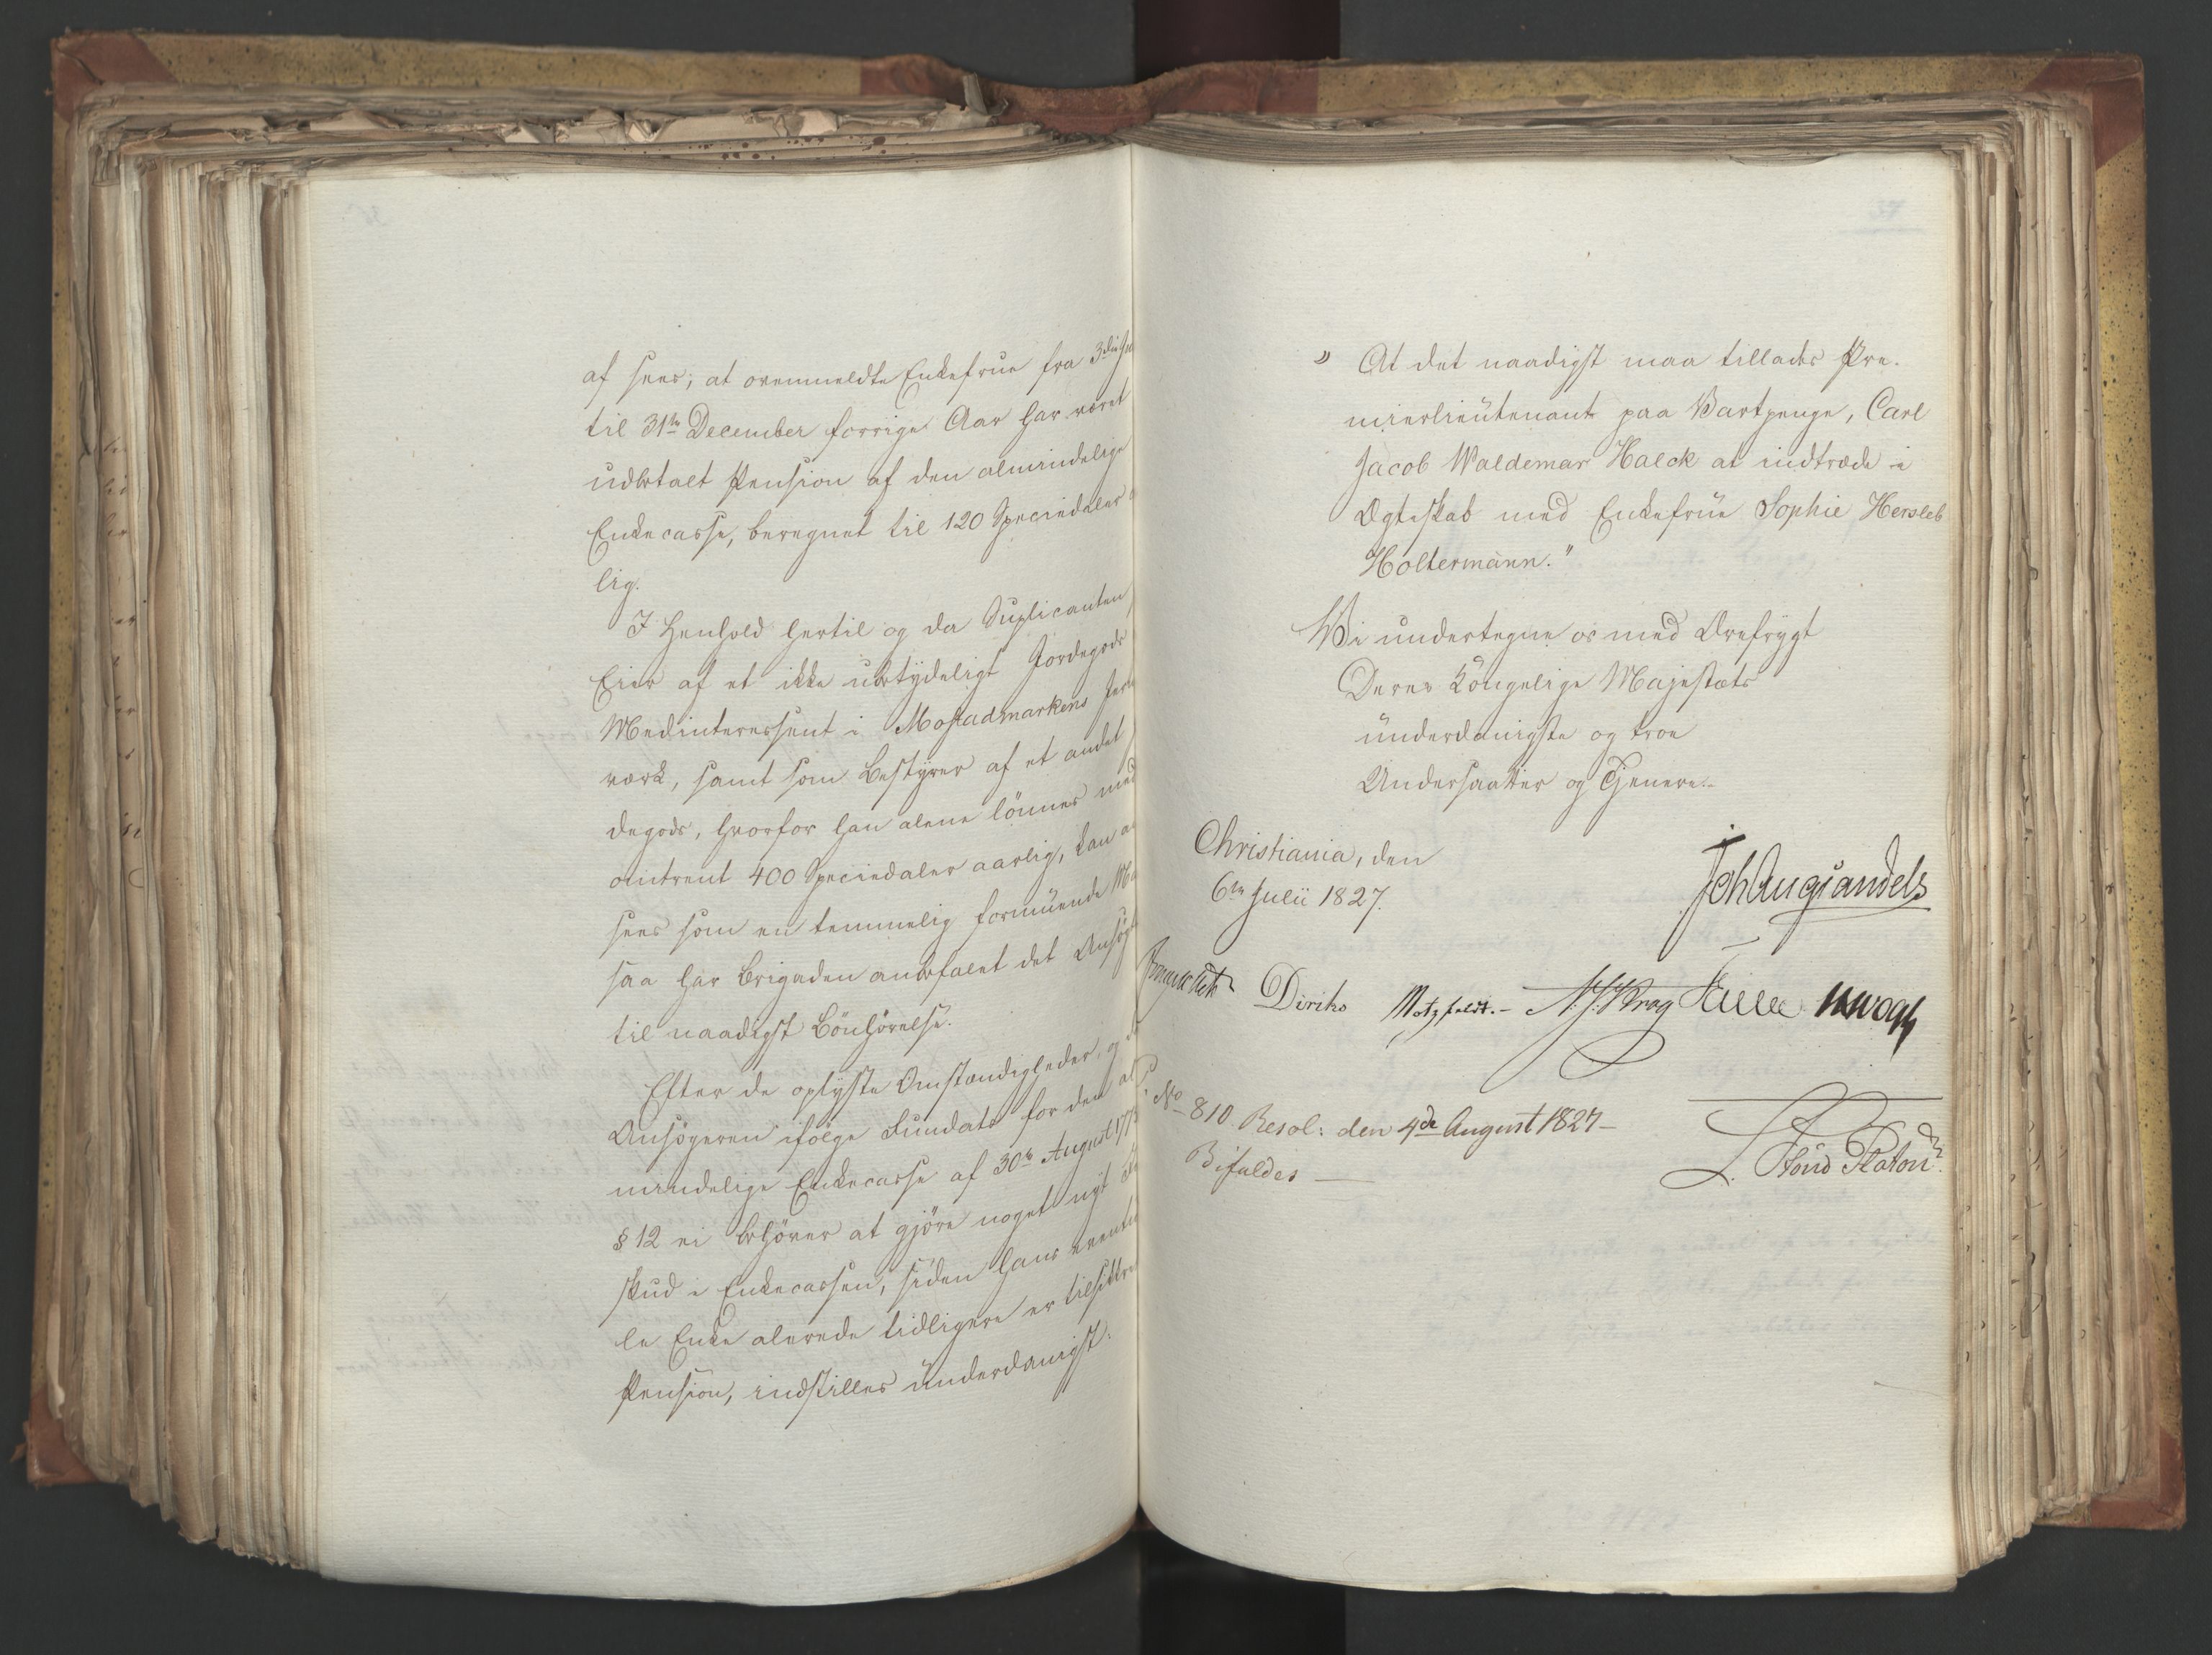 af sees, at ovenmeldte Enkefrue fra 3die
til 31te December forrige Aar har været
udbetalt Pension af den almindelige
Enkecasse, beregnet til 120 Speciedaler
lig.
I Henhold hertil og da Suplicanten
Eier af et ikke ubetydeligt Jordegods
Medinteressent i Mostadmarkens Jern
værk, samt som Bestyrer af et andet
degods, hvorfor han alene lönnes med
omtrent 400 Speciedaler aarlig, kan
sees som en temmelig formuende
saa har Brigaden anbefalet det
til naadigst Bönhörelse.
Efter de oplyste Omstændigheder, og
Ansögeren ifölge Fundats for den al
mindelige Enkecasse af 30te August
§ 12 ei behöver at gjöre noget nyt
skud i Enkecassen, siden hans eventu
le Enke allerede tidligere er tilsikkret
Pension, indstilles underdanigst:
" At det naadigst maa tillades Pre-
mierlieutenant paa Vartpenge, Carl
Jacob Waldemar Halck at indtræde i
Ægteskab med Enkefrue Sophie Hersleb
Holtermann."
Vi undertegne os med Ærefrygt
Deres Kongelige Majestæts
underdanigste og troe
Undersaatter og Tjenere.
Christiania, den
6te Julii 1827.
Joh Aug Sandels
Diriks Motzfeldt.- Krag
No 810 Resol: den 4de August 1827-
Bifaldes —